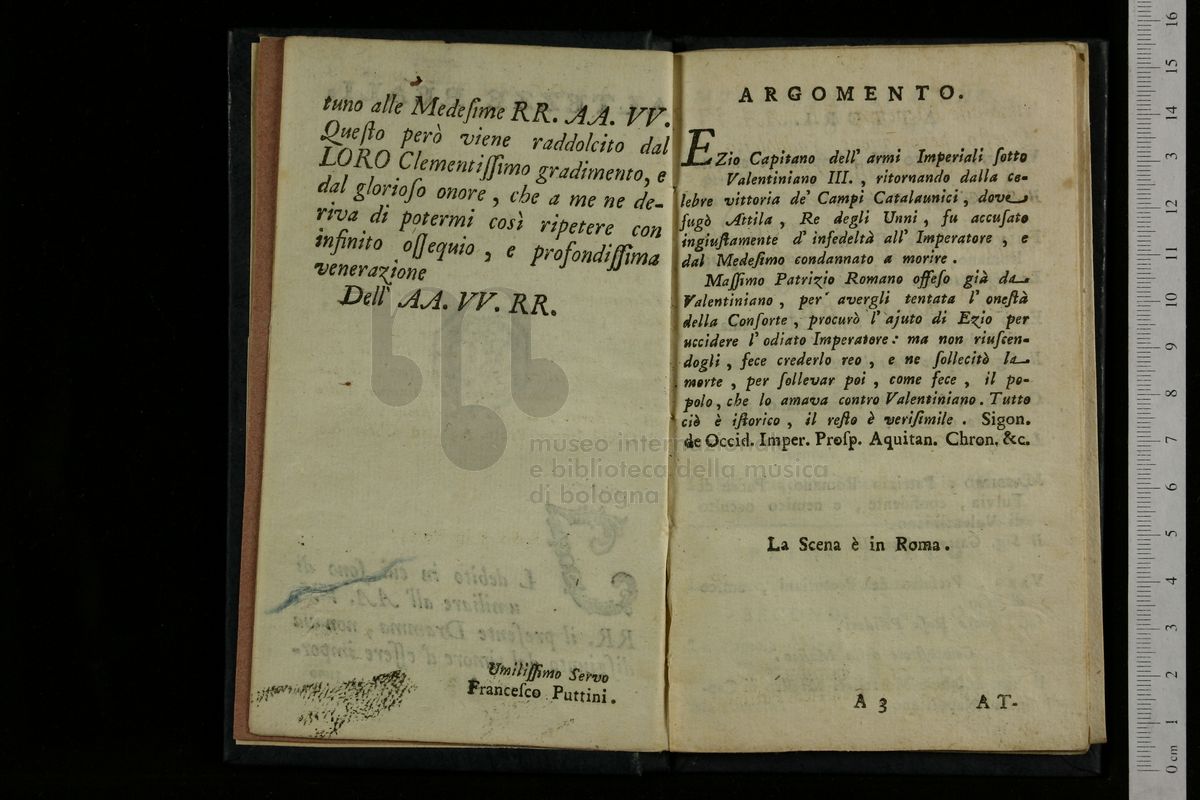 tuno alle Medeſime RR. AA. VV.
Queſto però viene raddolcito dal
LORO Clementiſſimo gradimento, e
dal glorioſo onore, che a me ne de-
riva di potermi così ripetere con
infinito oſſequio, e profondiſſima
venerazione
Dell' AA. VV. RR.
Umiliſſimo Servo
Franceſco Puttini.
ARGOMENTO.
EZio Capitano dell' armi Imperiali ſotto
Valentiniano III., ritornando dalla ce-
lebre vittoria de' Campi Catalaunici, dove
fugò Attila, Re degli Unni, fu accuſato
ingiuſtamente d' infedeltà all' Imperatore, e
dal Medeſimo condannato a morire.
Maſſimo Patrizio Romano offeſo già da
Valentiniano, per avergli tentata l' oneſtà
della Conſorte, procurò l' ajuto di Ezio per
uccidere l' odiato Imperatore: ma non riuſcen-
dogli, fece crederlo reo, e ne ſollecitò la
morte, per ſollevar poi, come fece, il po-
polo, che lo amava contro Valentiniano. Tutto
ciò è iſtorico, il reſto è veriſimile. Sigon.
de Occid. Imper. Proſp. Aquitan. Chron. &c.
La Scena è in Roma.
A 3 AT-
museo internazionale
e biblioteca della musica
di bologna
0 cm 1 2 3 4 5 6 7 8 9 10 11 12 3 14 15 16